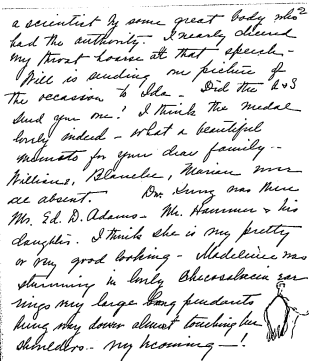 2
a scientist by some great body who
had the authority. I nearly cheered
my throat hoarse at that speech -
Will is sending one picture of
the occasion to Ida - Did the A & S
send you one? I think the medal
lovely indeed - what a beautiful
memento for your dear family --
William, Blanche, Marian were
all absent. Dr. was there
Mr. Ed. D. Adams - Mr. Hammer & his
daughter. I think she is very pretty
or very good looking - Madeleine was
stunning in lovely Checoslovacia ear
rings very large long pendants
hung way down almost touching her
shoulders - very becoming - !